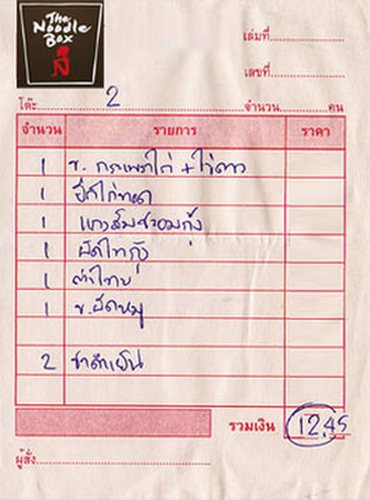 The
Noodle
Box
เล่มที่
เลขที่
โต๊ะ 2 จำนวน คน
จำนวน รายการ ราคา
1 ข. กระเพราไก่ + ไข่ดาว
1 ปีกไก่ทอด
1 แกงส้มชะอมกุ้ง
1 ผัดไทกุ้ง
1 ตำไทย
1 ข. ผัดหมู
2 ชาดำเย็น
รวมเงิน 12.45
ผู้สั่ง